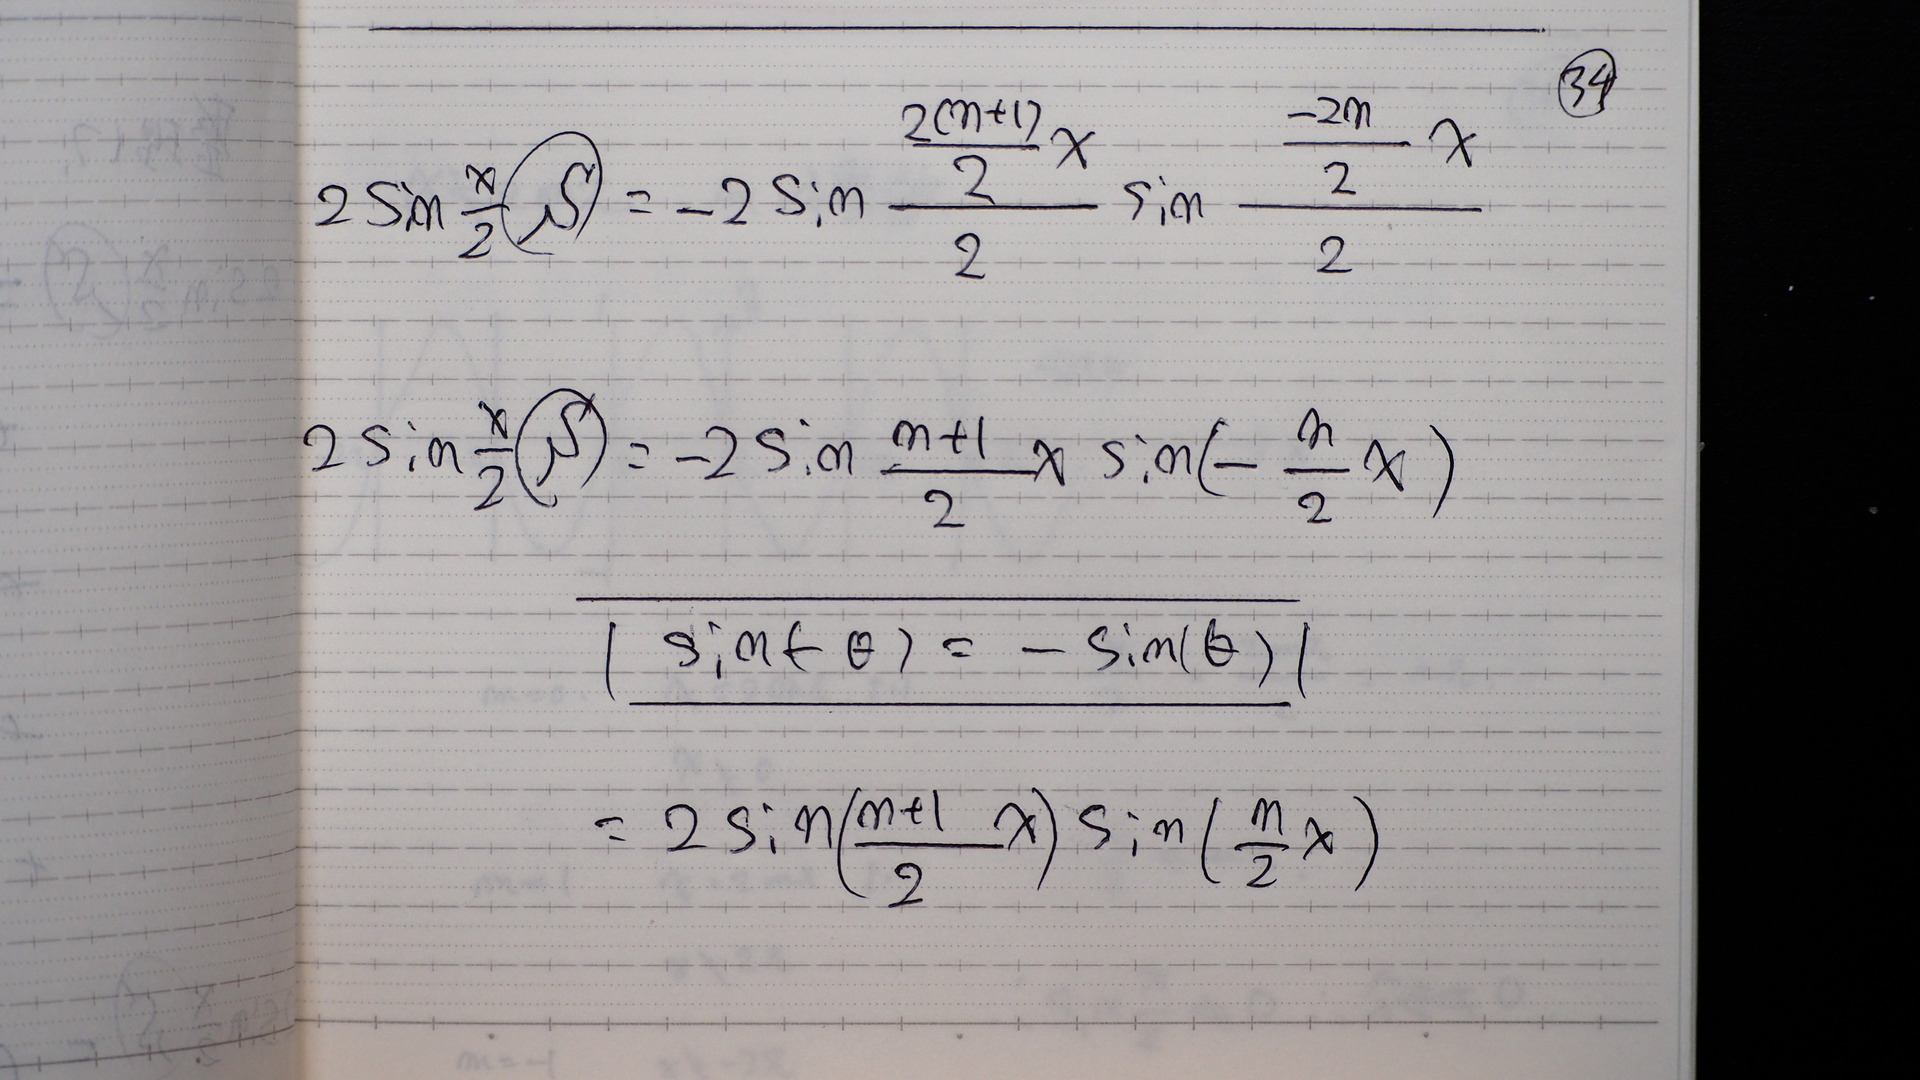 34
2 sin x/2 S = -2 sin ((2(n+1)/2)x)/2 sin ((-2n/2)x)/2
2 sin x/2 S = -2 sin (n+1)/2 x sin(- n/2 x)
sin(-θ) = - sin(θ)
= 2 sin((n+1)/2 x) sin(n/2 x)